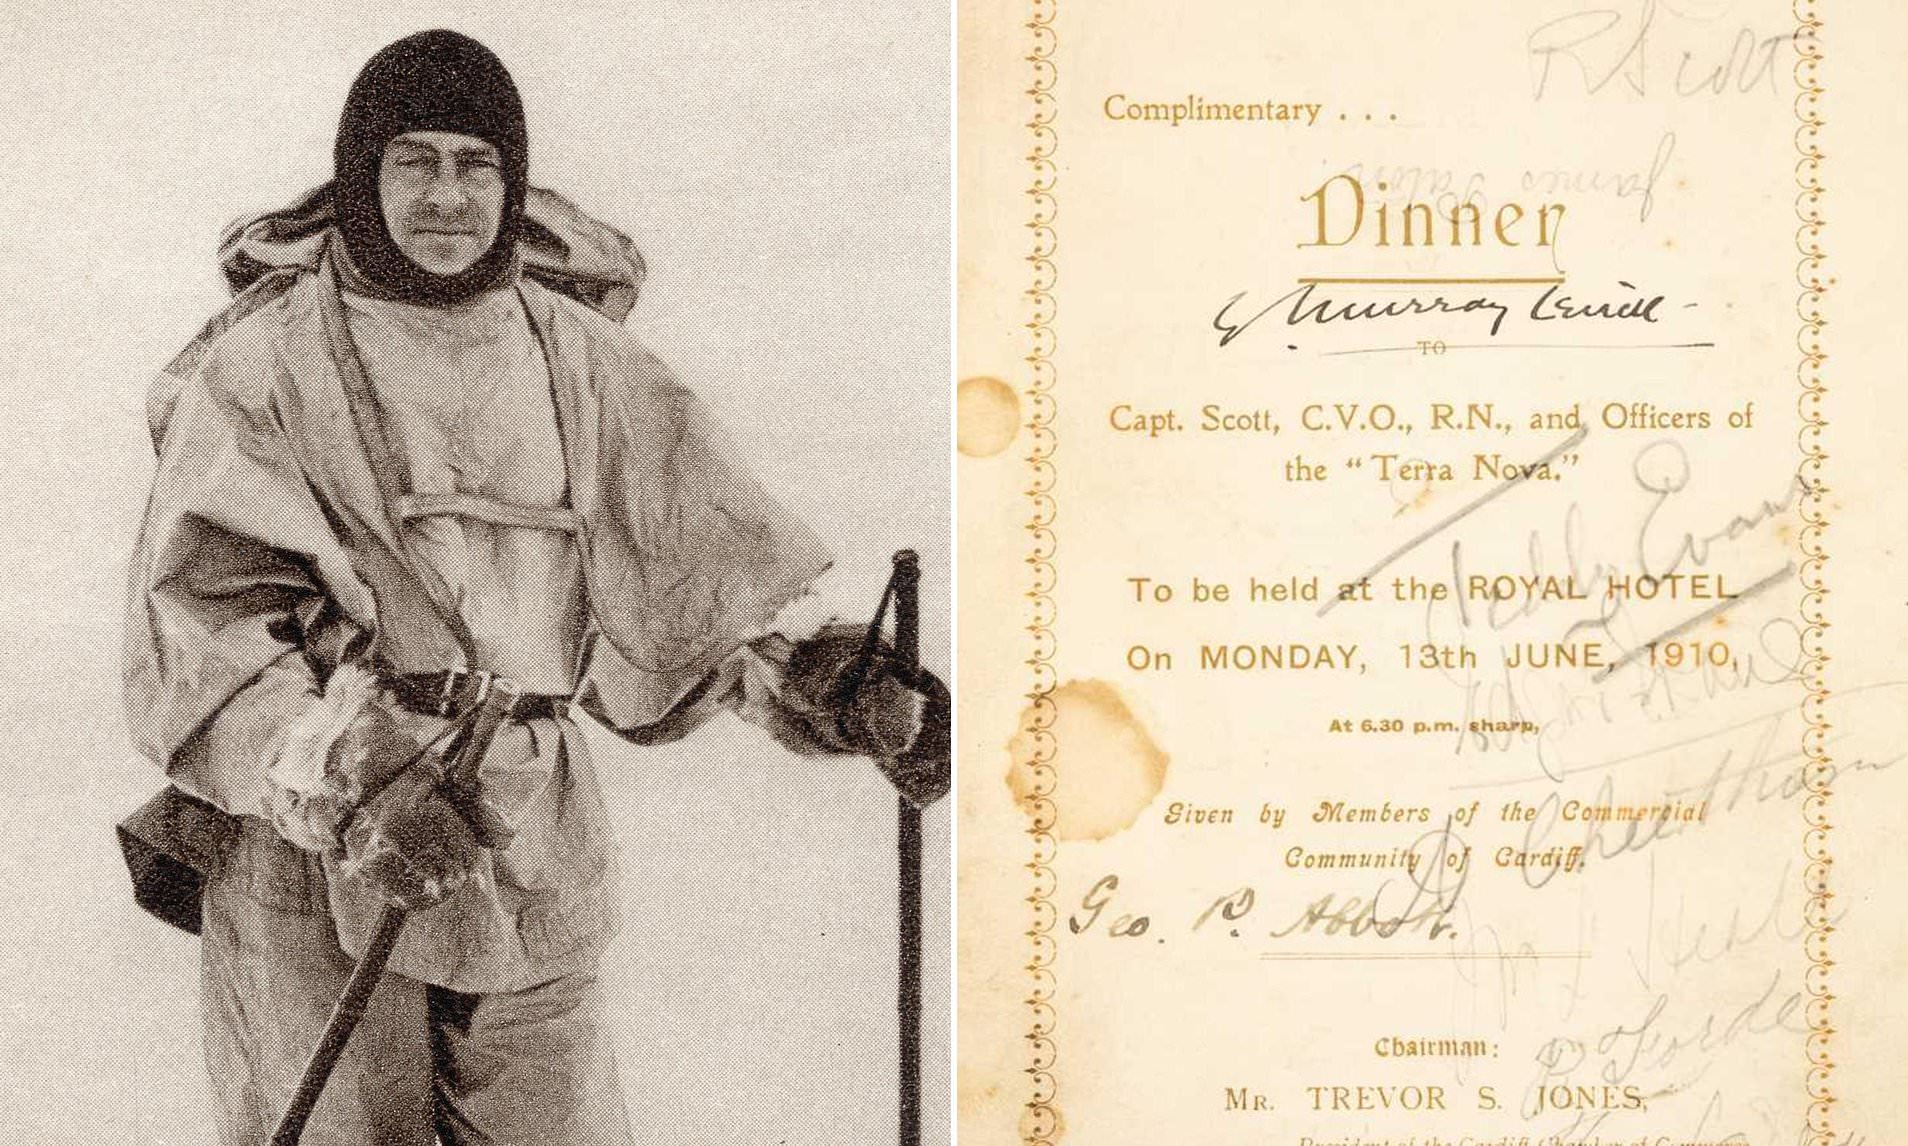 R Scott
Complimentary . . .
James
Dinner
Murray
TO
Capt. Scott, C.V.O., R.N., and Officers of
the “Terra Nova.”
Teddy Evans
To be held at the ROYAL HOTEL
On MONDAY, 13th JUNE, 1910,
At 6.30 p.m. sharp,
A Cheetham
Given by Members of the Commercial
Community of Cardiff.
Geo. P. Abbott.
Chairman:
R Forde
MR. TREVOR S. JONES,
President of the Cardiff Chamber of Commerce